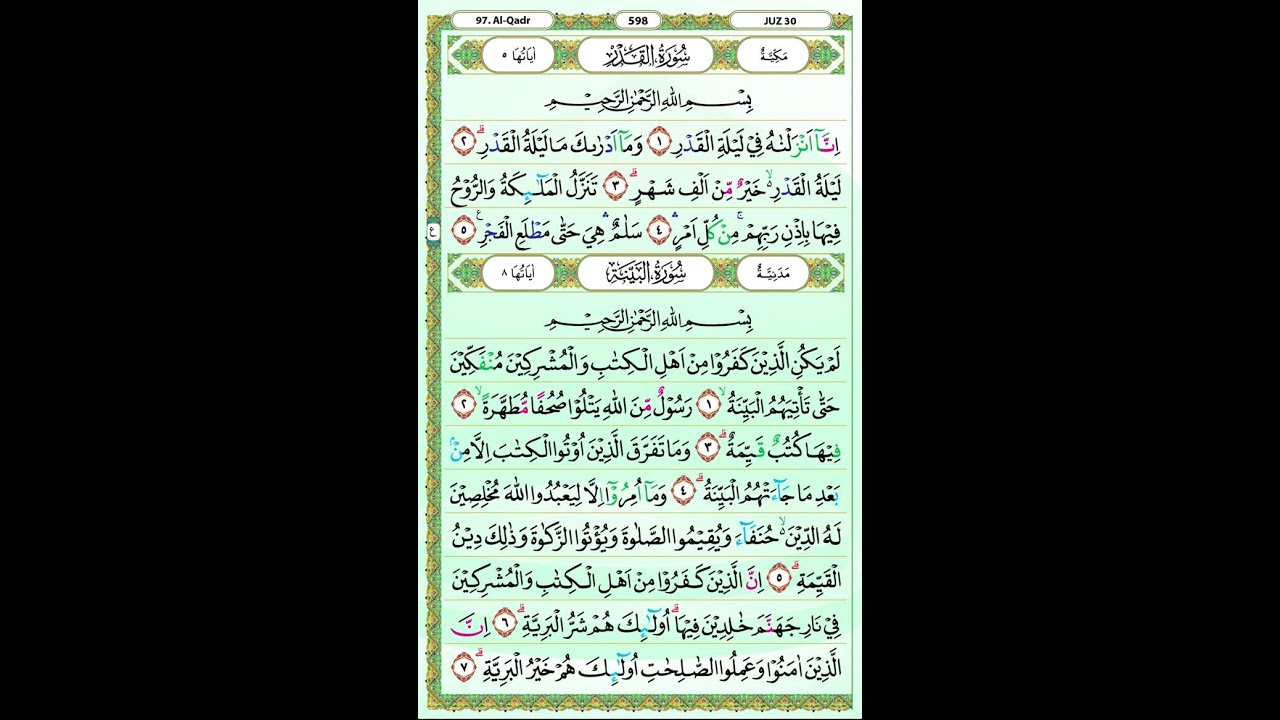 97. Al-Qadr 598 JUZ 30
مَكِّيَّةٌ سُوْرَةُ الْقَدْرِ اٰيَاتُهَا ٥
بِسْمِ اللهِ الرَّحْمٰنِ الرَّحِيْمِ
اِنَّآ اَنْزَلْنٰهُ فِيْ لَيْلَةِ الْقَدْرِ ١ وَمَآ اَدْرٰىكَ مَا لَيْلَةُ الْقَدْرِۗ ٢
لَيْلَةُ الْقَدْرِ ەۙ خَيْرٌ مِّنْ اَلْفِ شَهْرٍۗ ٣ تَنَزَّلُ الْمَلٰۤىِٕكَةُ وَالرُّوْحُ
فِيْهَا بِاِذْنِ رَبِّهِمْۚ مِنْ كُلِّ اَمْرٍۛ ٤ سَلٰمٌۛ هِيَ حَتّٰى مَطْلَعِ الْفَجْرِ ࣖ ٥
ع
مَدَنِيَّةٌ سُوْرَةُ الْبَيِّنَةِ اٰيَاتُهَا ٨
بِسْمِ اللهِ الرَّحْمٰنِ الرَّحِيْمِ
لَمْ يَكُنِ الَّذِيْنَ كَفَرُوْا مِنْ اَهْلِ الْكِتٰبِ وَالْمُشْرِكِيْنَ مُنْفَكِّيْنَ
حَتّٰى تَأْتِيَهُمُ الْبَيِّنَةُۙ ١ رَسُوْلٌ مِّنَ اللهِ يَتْلُوْا صُحُفًا مُّطَهَّرَةًۙ ٢
فِيْهَا كُتُبٌ قَيِّمَةٌۗ ٣ وَمَا تَفَرَّقَ الَّذِيْنَ اُوْتُوا الْكِتٰبَ اِلَّا مِنْۢ
بَعْدِ مَا جَاۤءَتْهُمُ الْبَيِّنَةُۗ ٤ وَمَآ اُمِرُوْٓا اِلَّا لِيَعْبُدُوا اللهَ مُخْلِصِيْنَ
لَهُ الدِّيْنَ ەۙ حُنَفَاۤءَ وَيُقِيْمُوا الصَّلٰوةَ وَيُؤْتُوا الزَّكٰوةَ وَذٰلِكَ دِيْنُ
الْقَيِّمَةِۗ ٥ اِنَّ الَّذِيْنَ كَفَرُوْا مِنْ اَهْلِ الْكِتٰبِ وَالْمُشْرِكِيْنَ
فِيْ نَارِ جَهَنَّمَ خٰلِدِيْنَ فِيْهَاۗ اُولٰۤىِٕكَ هُمْ شَرُّ الْبَرِيَّةِۗ ٦ اِنَّ
الَّذِيْنَ اٰمَنُوْا وَعَمِلُوا الصّٰلِحٰتِ اُولٰۤىِٕكَ هُمْ خَيْرُ الْبَرِيَّةِۗ ٧